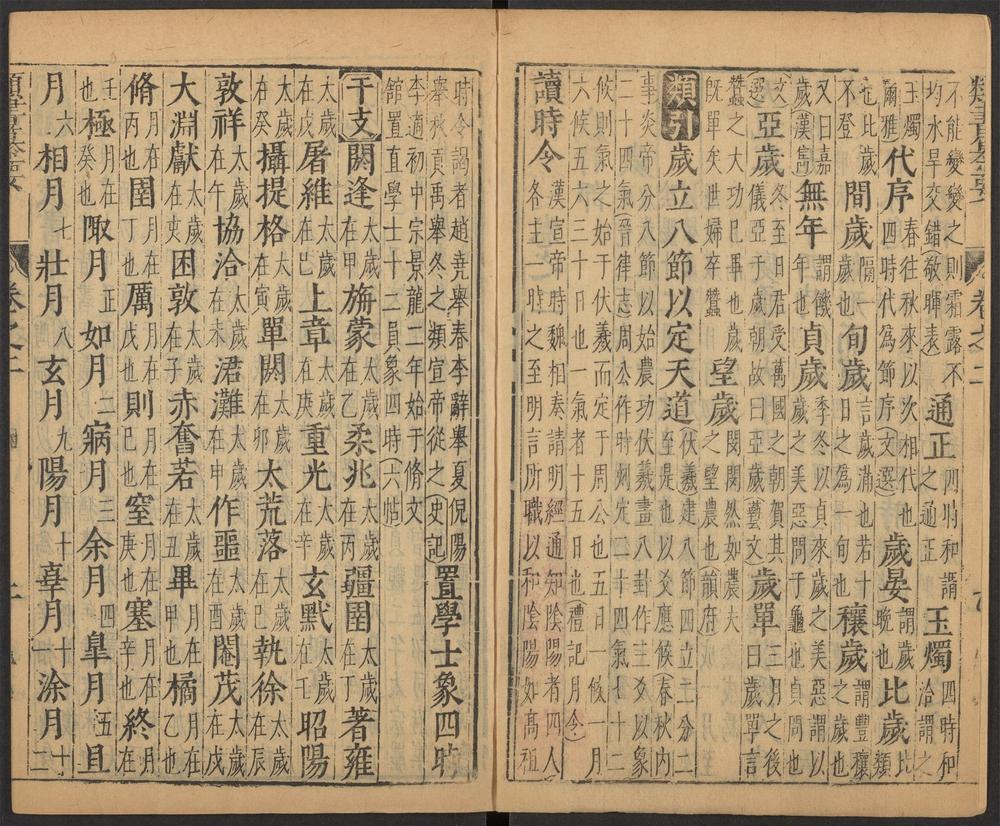 不能變變之則霜露不均水旱交錯(敬暉表)通正四時和謂之通正玉燭四時和洽謂之
玉燭(爾雅)代序春往秋來以次相代也四時代為節序(文選)歲晏謂歲晚也比歲比類
也比歲不登間歲隔一歲也旬歲言歲滿也若十日之為一旬也穰歲謂豐穰之歲也
又曰嘉歲(漢書)無年謂饑年也貞歲季冬以貞來歲之美惡謂以歲之美惡問于龜也貞問也
(文選)亞歲冬至日君受萬國之朝賀其儀亞于歲朝故曰亞歲(藝文)歲單三月之後曰歲單言
蠶之大功已畢也歲既單矣世婦卒蠶望歲閔閔然如農夫之望農也(韻府)
類引 歲立八節以定天道(伏羲)建八節四立二分二至是也以爻應候(春秋內
事)炎帝分八節以始農功伏羲畫八卦作三爻以象二十四氣(晉律志)周公作時則定二十四氣七十二
候則氣之始于伏羲而定于周公也五日一候一月六候五六三十日也一氣者十五日也禮記月令
讀時令漢宣帝時魏相奏請明經通知陰陽者四人各主一時時之至明言所職以和陰陽如高祖
卷之二
時令謁者趙堯舉春李辭舉夏倪陽舉秋貢禹舉冬之類宣帝從之(史記)置學士象四時
李適初中宗景龍二年始于脩文館置直學士十二員象四時(六帖)
干支 閼逢太歲在甲旃蒙太歲在乙柔兆太歲在丙疆圉太歲在丁著雍
太歲在戊屠維太歲在己上章太歲在庚重光太歲在辛玄默太歲在壬昭陽
太歲在癸攝提格太歲在寅單閼太歲在卯太荒落太歲在巳執徐太歲在辰
敦祥太歲在午協洽太歲在未涒灘太歲在申作噩太歲在酉閹茂太歲在戌
大淵獻太歲在亥困敦太歲在子赤奮若太歲在丑畢月在甲也橘月在乙也
脩月在丙也圉月在丁也厲月在戊也則月在己也窒月在庚也塞月在辛也終月在
壬也極月在癸也陬月正如月二寎月三余月四皐月五且
月六相月七壯月八玄月九陽月十辜月十一涂月十二
卷之二